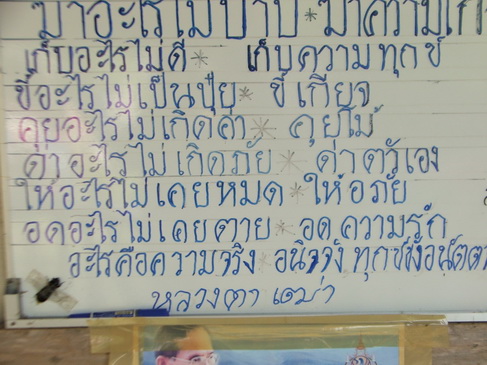 ฆ่าอะไรไม่บาป * ฆ่าความโกรธ
เก็บอะไรไม่ดี * เก็บความทุกข์
ขี้อะไรไม่เป็นปุ๋ย * ขี้เกียจ
คุยอะไรไม่เกิดค่า * คุยโม้
ด่าอะไรไม่เกิดภัย * ด่าตัวเอง
ให้อะไรไม่เคยหมด * ให้อภัย
อดอะไรไม่เคยตาย * อดความรัก
อะไรคือความจริง * อนิจจัง ทุกขังอนัตตา
หลวงตา